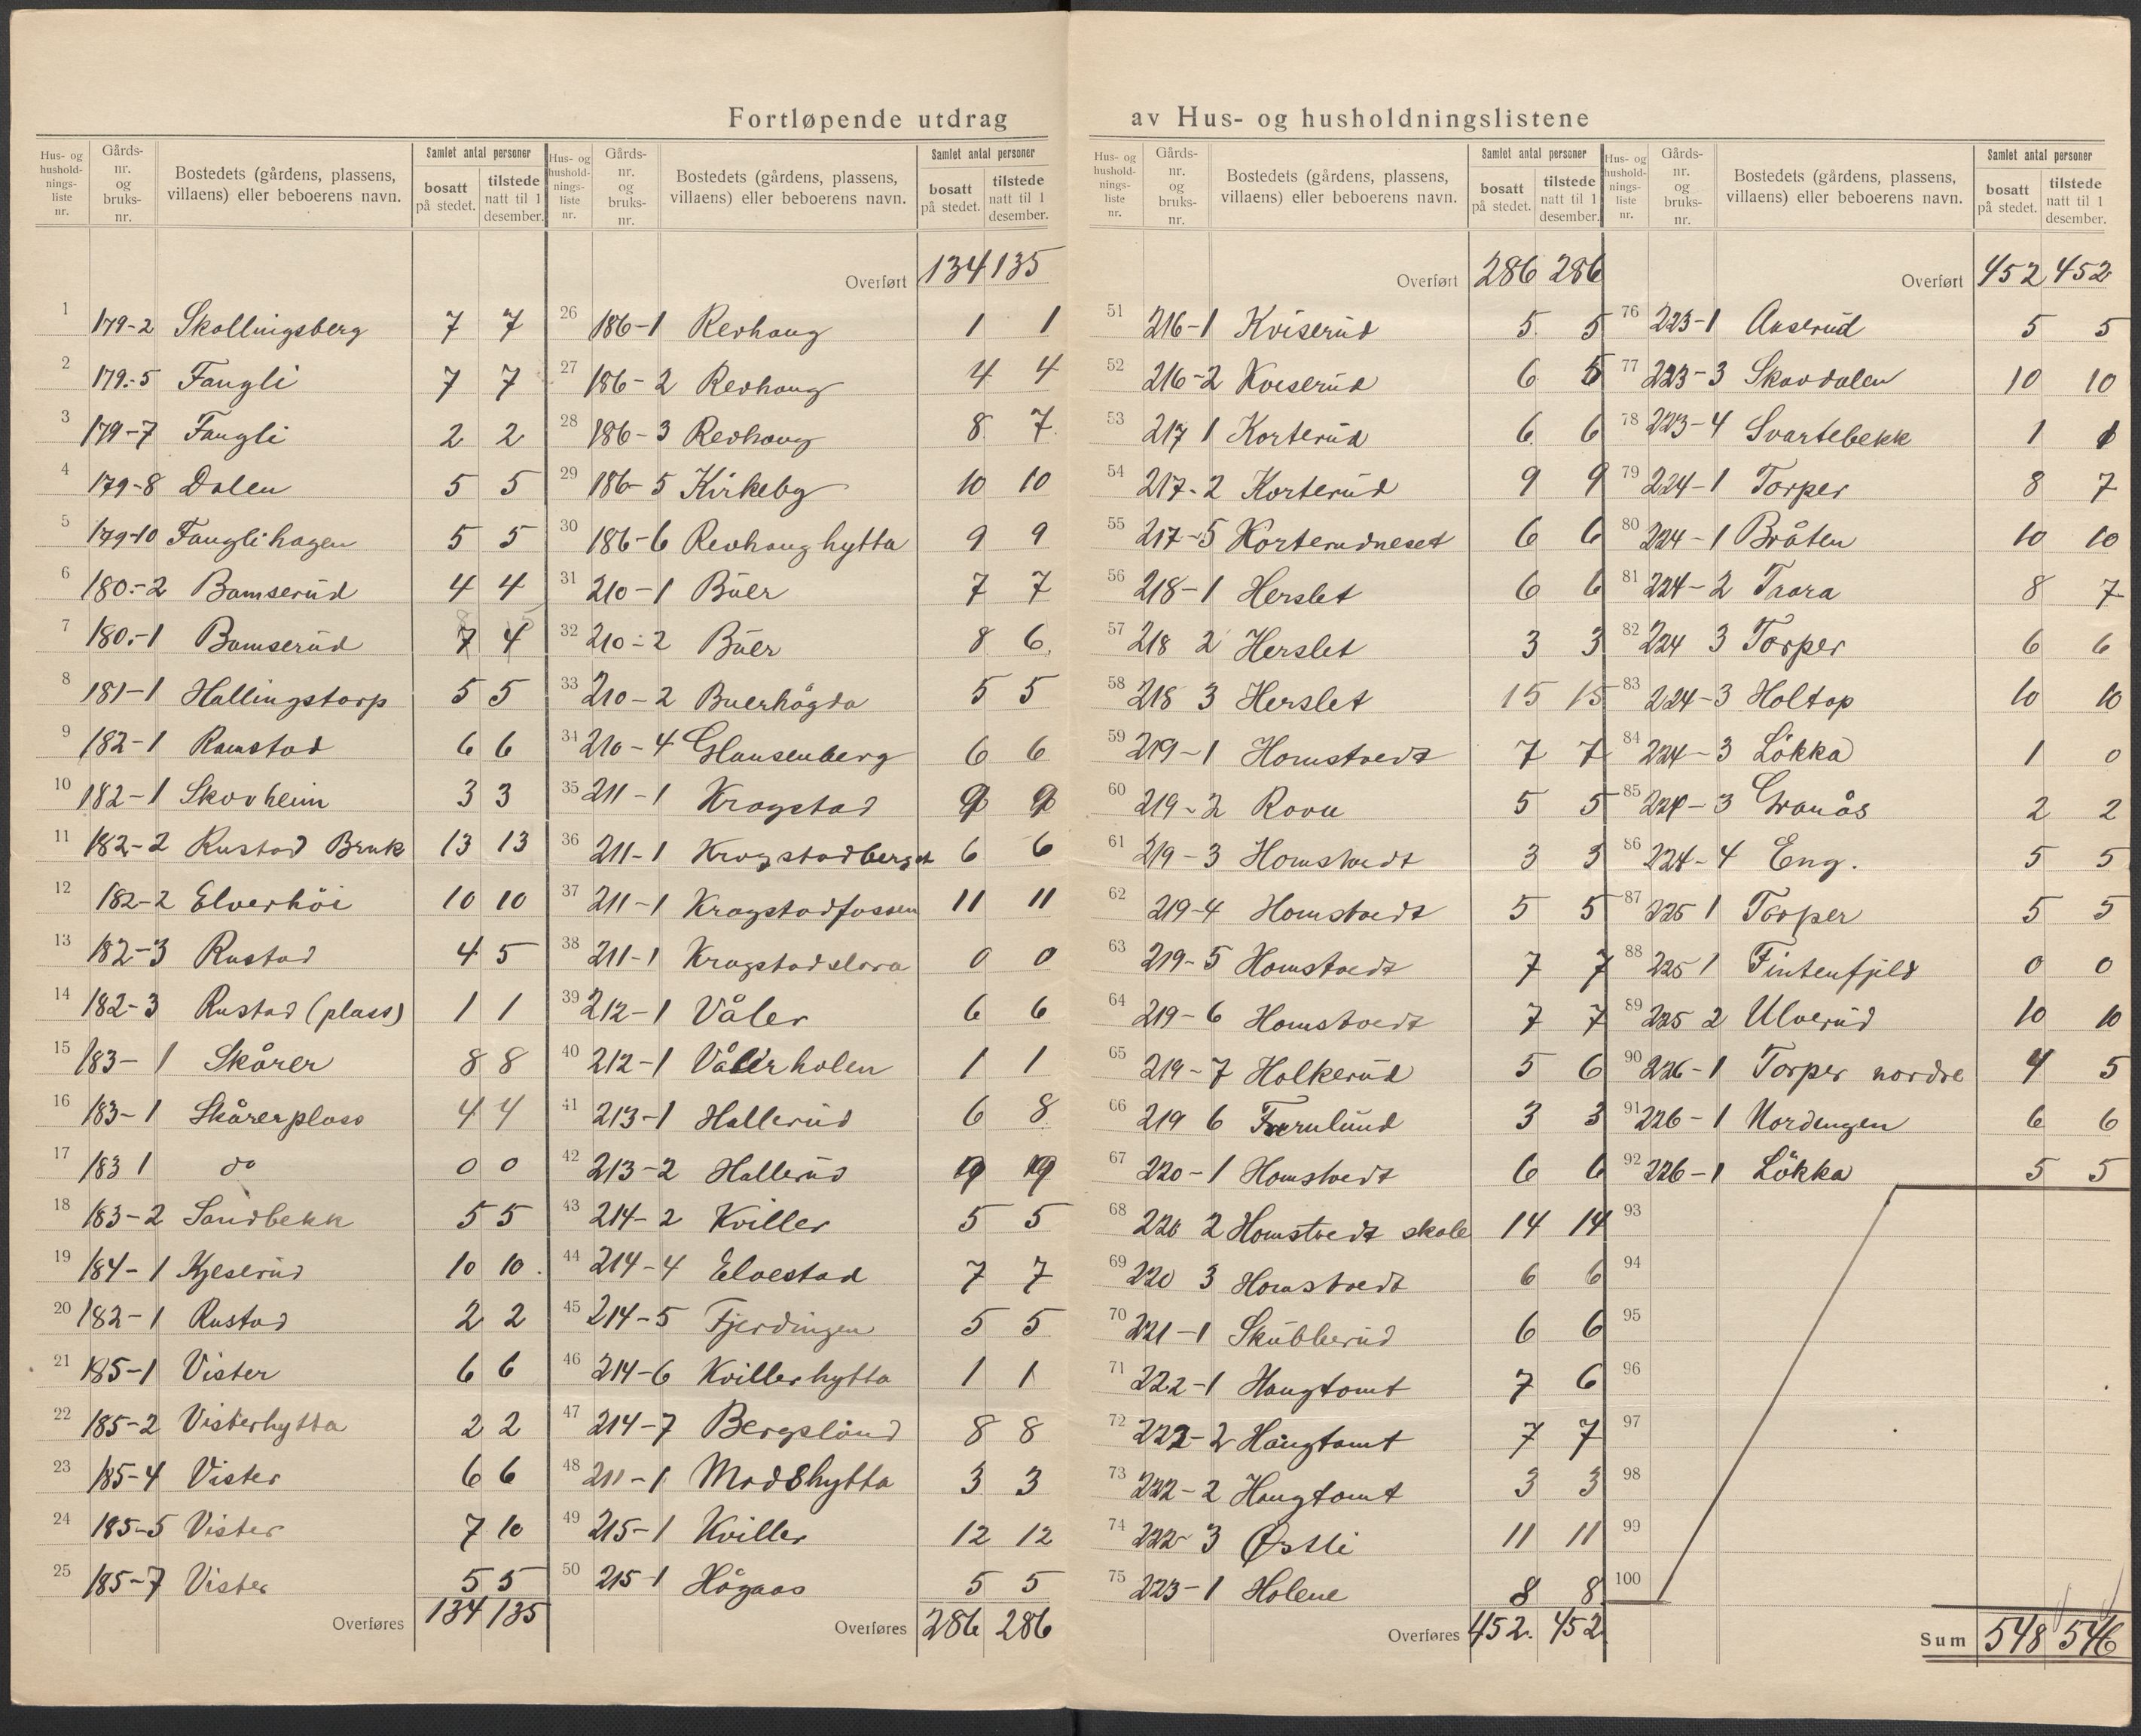 Fortløpende utdrag av Hus- og husholdningslistene
Hus- og husholdnings- liste nr. Gårds- nr. og bruks- nr. Bostedets (gårdens, plassens, villaens) eller beboerens navn. Samlet antal personer bosatt på stedet. tilstede natt til 1 desember.
1 179-2 Skollingsberg 7 7
2 179-5 Fangli 7 7
3 179-7 Fangli 2 2
4 179-8 Dalen 5 5
5 179-10 Fanglihagen 5 5
6 180-2 Bamserud 4 4
7 180-1 Bamserud 7 4
8 181-1 Hallingstorp 5 5
9 182-1 Ramstad 6 6
10 182-1 Skovheim 3 3
11 182-2 Rustad Bruk 13 13
12 182-2 Elverhöi 10 10
13 182-3 Rustad 4 5
14 182-3 Rustad (plass) 1 1
15 183-1 Skårer 8 8
16 183-1 Skårerplass 4 4
17 183 1 do 0 0
18 183-2 Sandbekk 5 5
19 184-1 Kjeserud 10 10
20 182-1 Rustad 2 2
21 185-1 Vister 6 6
22 185-2 Visterhytta 2 2
23 185-4 Vister 6 6
24 185-5 Vister 7 10
25 185-7 Vister 5 5
Overføres 134 135
Hus- og husholdnings- liste nr. Gårds- nr. og bruks- nr. Bostedets (gårdens, plassens, villaens) eller beboerens navn. Samlet antal personer bosatt på stedet. tilstede natt til 1 desember.
Overført 134 135
26 186-1 Revhaug 1 1
27 186-2 Revhaug 4 4
28 186-3 Revhaug 8 7
29 186-5 Kirkeby 10 10
30 186-6 Revhaughytta 9 9
31 210-1 Buer 7 7
32 210-2 Buer 8 6
33 210-2 Buerhögda 5 5
34 210-4 Glansenberg 6 6
35 211-1 Krogstad 9 9
36 211-1 Krogstadberget 6 6
37 211-1 Krogstadfossen 11 11
38 211-1 Krogstadslora 0 0
39 212-1 Våler 6 6
40 212-1 Vålerholen 1 1
41 213-1 Hallerud 6 8
42 213-2 Hallerud 19 19
43 214-2 Kviller 5 5
44 214-4 Elvestad 7 7
45 214-5 Fjerdingen 5 5
46 214-6 Kvillerhytta 1 1
47 214-7 Bergslund 8 8
48 211-1 Modshytta 3 3
49 215-1 Kviller 12 12
50 215-1 Högaas 5 5
Overføres 286 286
Hus- og husholdnings- liste nr. Gårds- nr. og bruks- nr. Bostedets (gårdens, plassens, villaens) eller beboerens navn. Samlet antal personer bosatt på stedet. tilstede natt til 1 desember.
Overført 286 286
51 216-1 Kviserud 5 5
52 216-2 Kviserud 6 5
53 217 1 Korterud 6 6
54 217-2 Korterud 9 9
55 217-5 Korterudneset 6 6
56 218-1 Herslet 6 6
57 218 2 Herslet 3 3
58 218 3 Herslet 15 15
59 219-1 Homstvedt 7 7
60 219-2 Rovu 5 5
61 219-3 Homstvedt 3 3
62 219-4 Homstvedt 5 5
63 219-5 Homstvedt 7 7
64 219-6 Homstvedt 7 7
65 219-7 Holkerud 5 6
66 219 6 Furulund 3 3
67 220-1 Homstvedt 6 6
68 220 2 Homstvedt skole 14 14
69 220 3 Homstvedt 6 6
70 221-1 Skubberud 6 6
71 222-1 Haugtomt 7 6
72 222-2 Haugtomt 7 7
73 222-2 Haugtomt 3 3
74 222-3 Østli 11 11
75 223-1 Holene 8 8
Overføres 452 452
Hus- og husholdnings- liste nr. Gårds- nr. og bruks- nr. Bostedets (gårdens, plassens, villaens) eller beboerens navn. Samlet antal personer bosatt på stedet. tilstede natt til 1 desember.
Overført 452 452
76 223-1 Auserud 5 5
77 223-3 Skavdalen 10 10
78 223-4 Svartebekk 1 1
79 224-1 Torper 8 7
80 224-1 Bråten 10 10
81 224-2 Trara 8 7
82 224 3 Torper 6 6
83 224-3 Holtop 10 10
84 224-3 Lökka 1 0
85 224-3 Granås 2 2
86 224-4 Eng. 5 5
87 225 1 Torper 5 5
88 225 1 Fintenfjeld 0 0
89 225 2 Ulverud 10 10
90 226-1 Torper nordre 4 5
91 226-1 Nordengen 6 6
92 226-1 Lökka 5 5
93
94
95
96
97
98
99
100
Sum 548 546